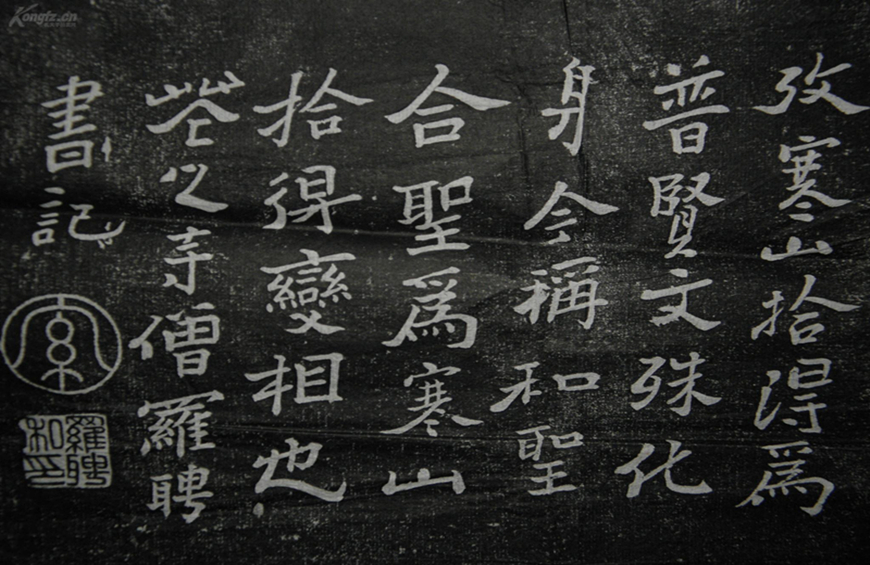 攷寒山拾得爲
普賢文殊化
身今稱和聖
合聖爲寒山
拾得變相也
花之寺僧羅聘
書記
羅聘私印
Kongfz.cn